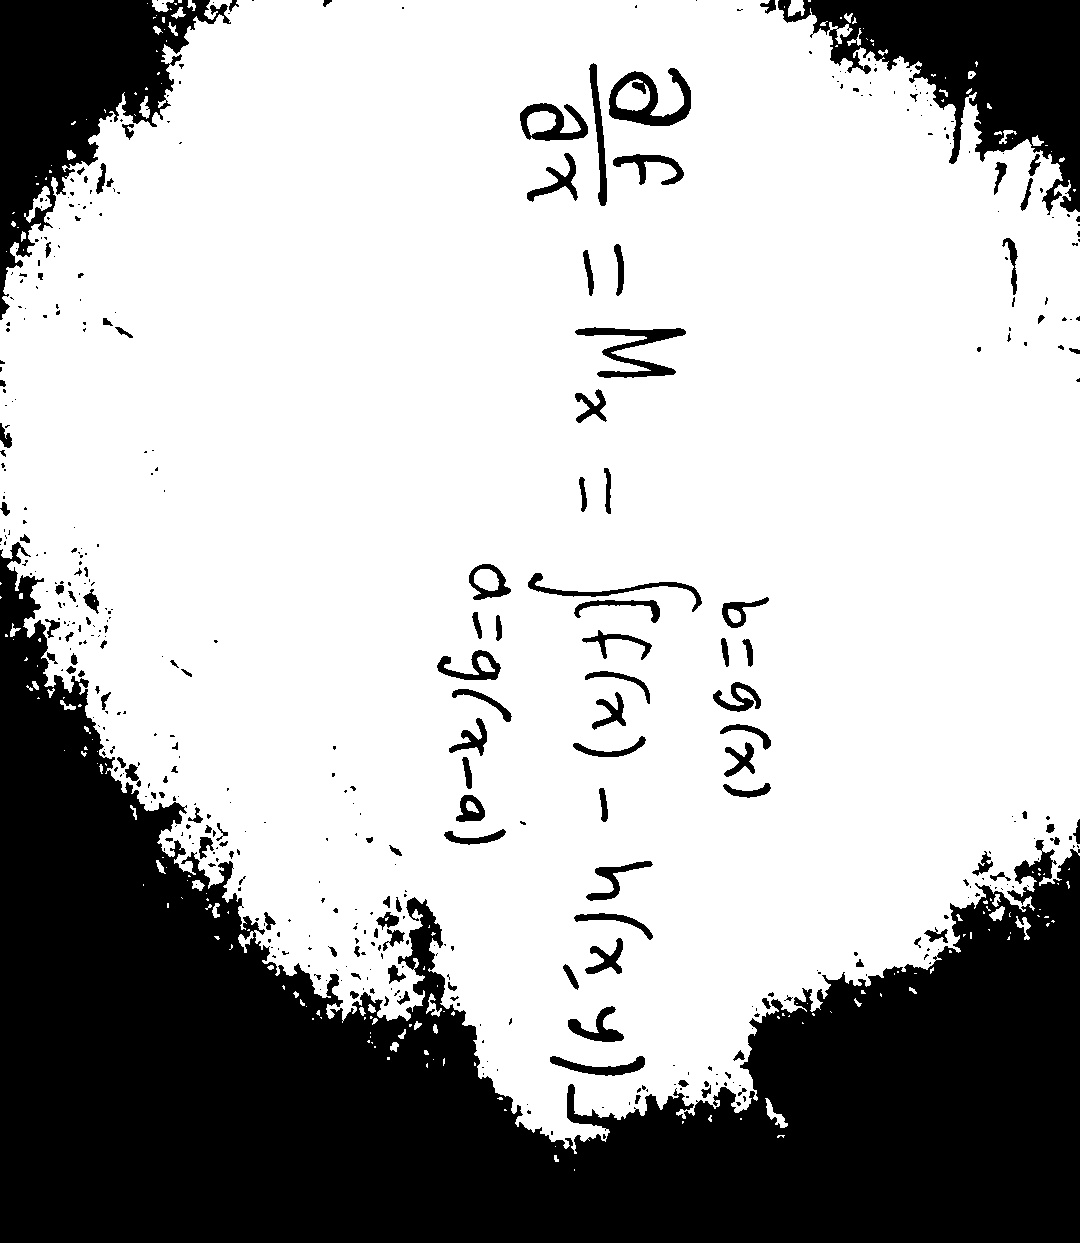 ∂f/∂x = Mₓ = ∫_{a=g(x-a)}^{b=g(x)} [f(x) - h(x,y)]